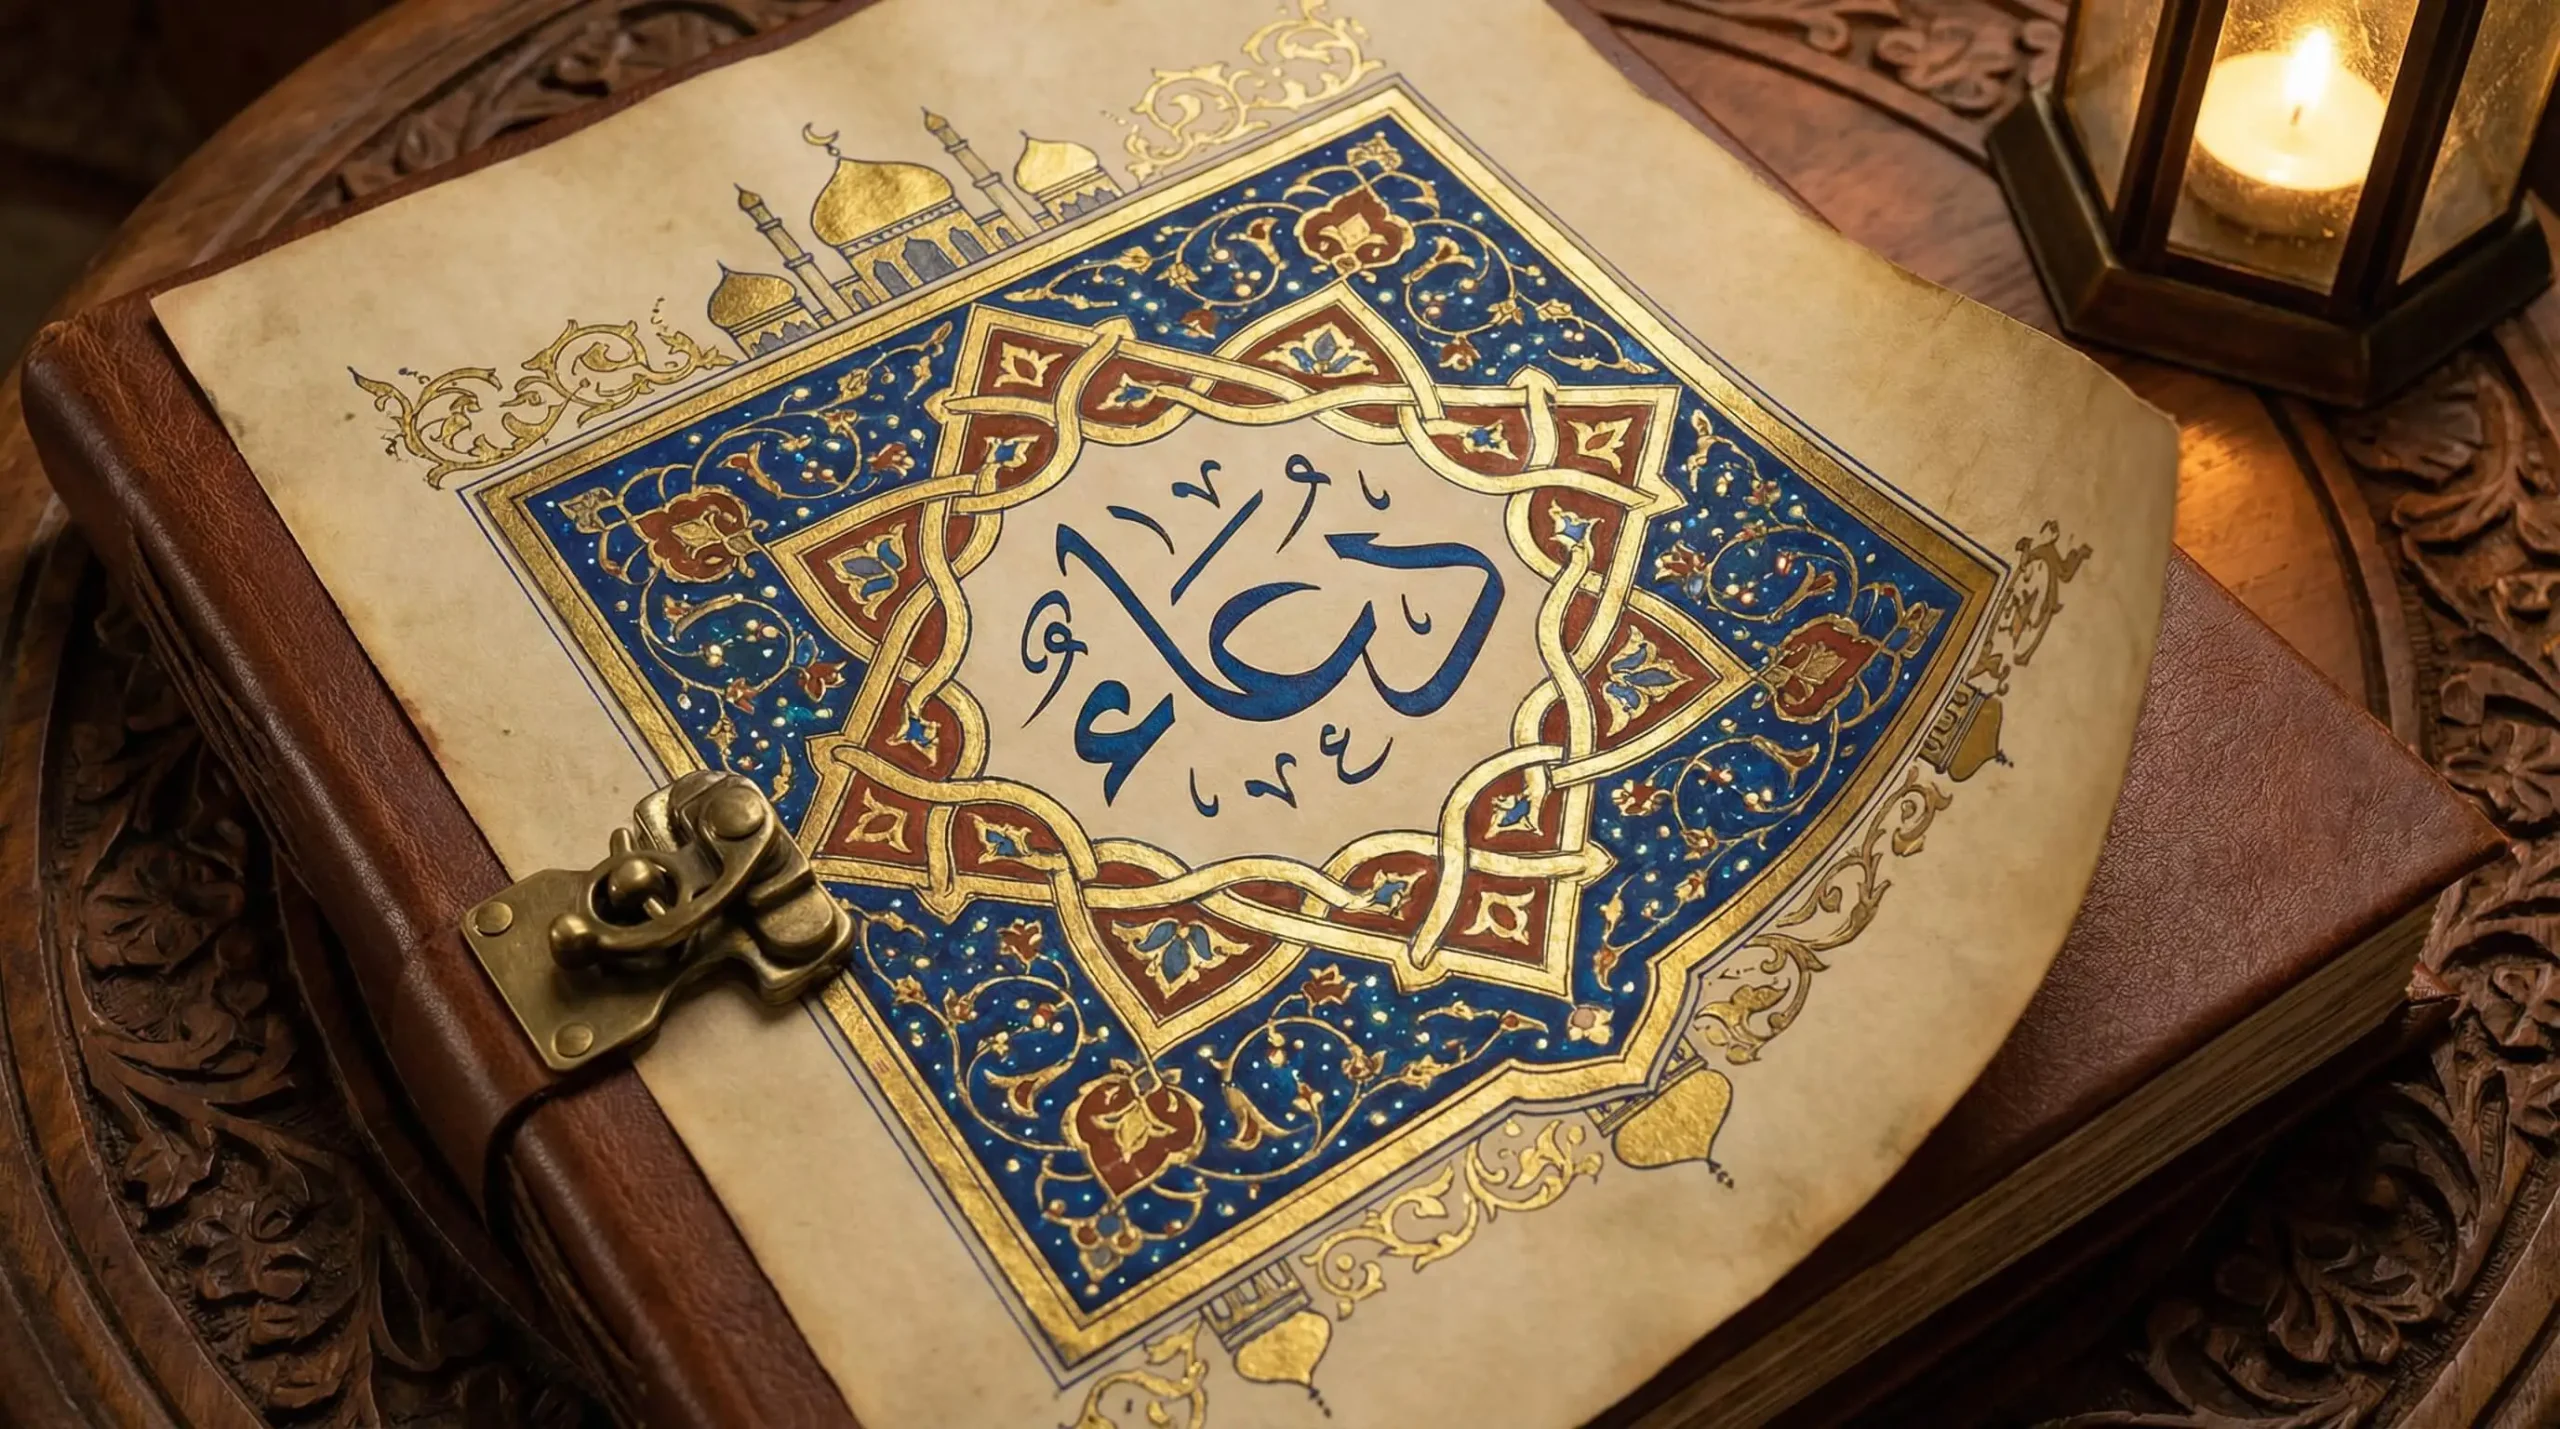 دعاء